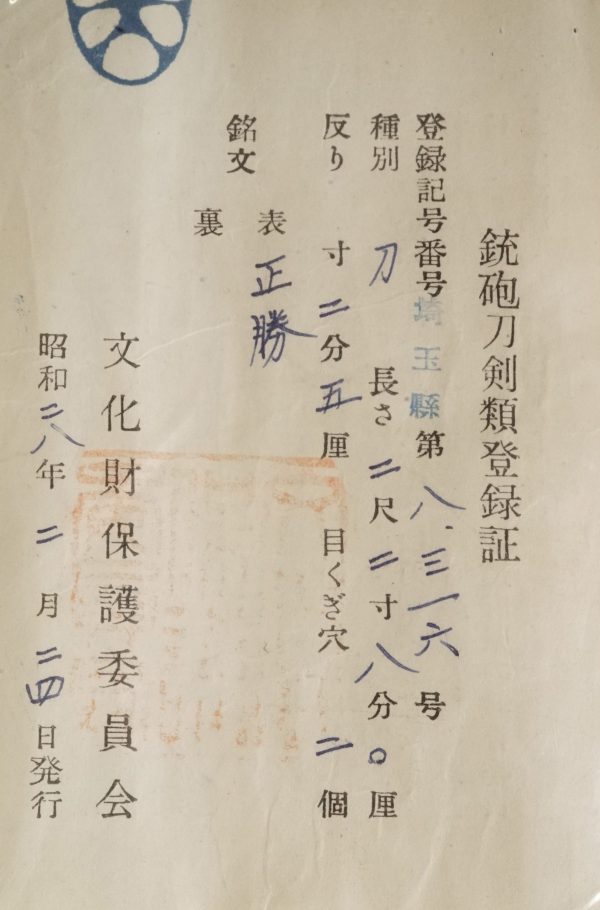 銃砲刀剣類登録証
登録記号番号埼玉縣第八、三一六号
種別 刀 長さ二尺二寸八分〇厘
反り 寸二分五厘 目くぎ穴 二個
銘文 表 正勝
裏
文化財保護委員会
昭和二八年二月二四日発行